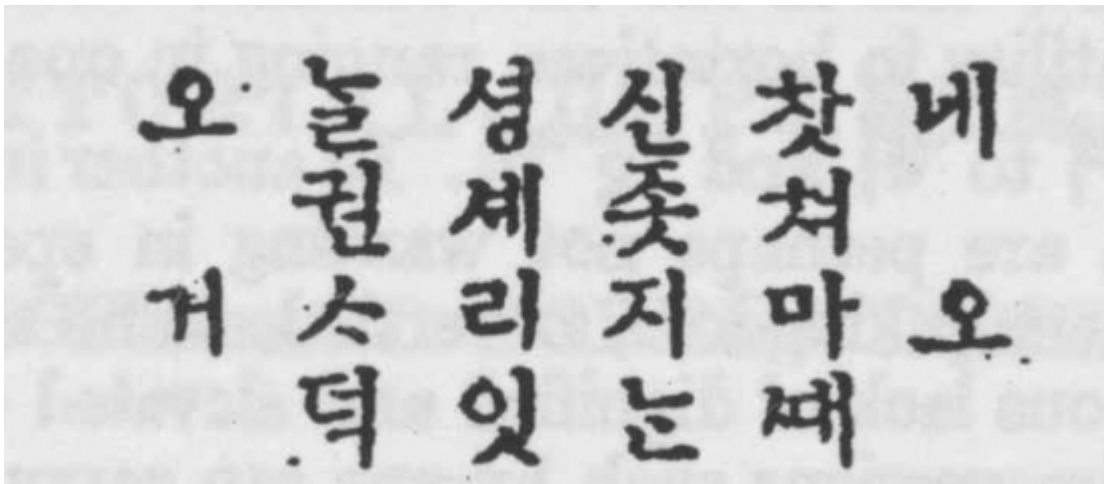 오늘셩신찻네
권셰좃쳐
거스리지마오
덕잇는때